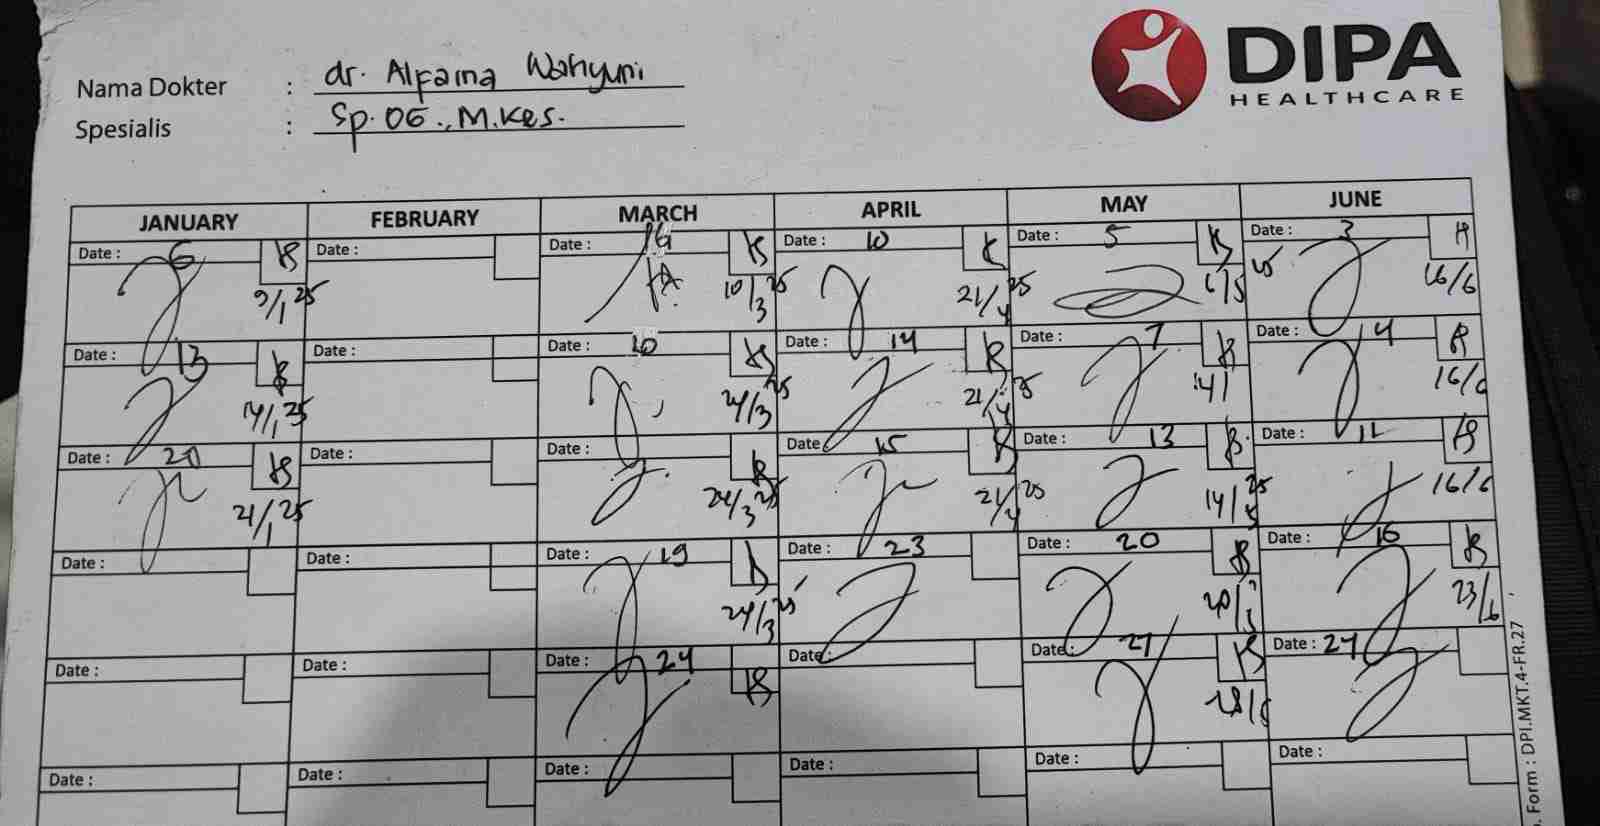 DIPA
HEALTHCARE
Nama Dokter : dr. Alfaina Wahyuni
Spesialis : Sp.OG., M.Kes.
JANUARY FEBRUARY MARCH APRIL MAY JUNE
Date : 6 Date : Date : Date : 10 Date : 5 Date : 3
9/1 25 10/3 25 21/4 25 6/5 16/6
Date : 13 Date : Date : 10 Date : 14 Date : 7 Date : 4
14/1 25 24/3 25 21/4 25 14/ 16/6
Date : 20 Date : Date 15 Date : 13 Date : 11
21/1 25 24/3 25 21/4 25 14/5 25 16/6
Date : Date : Date : 19 Date : 23 Date : 20 Date : 16
24/3 25 20/ 23/6
Date : Date : Date : 24 Date : Date : 27 Date : 24
28/5
Date : Date : Date : Date : Date : Date :
Form : DPI.MKT.4-FR.27